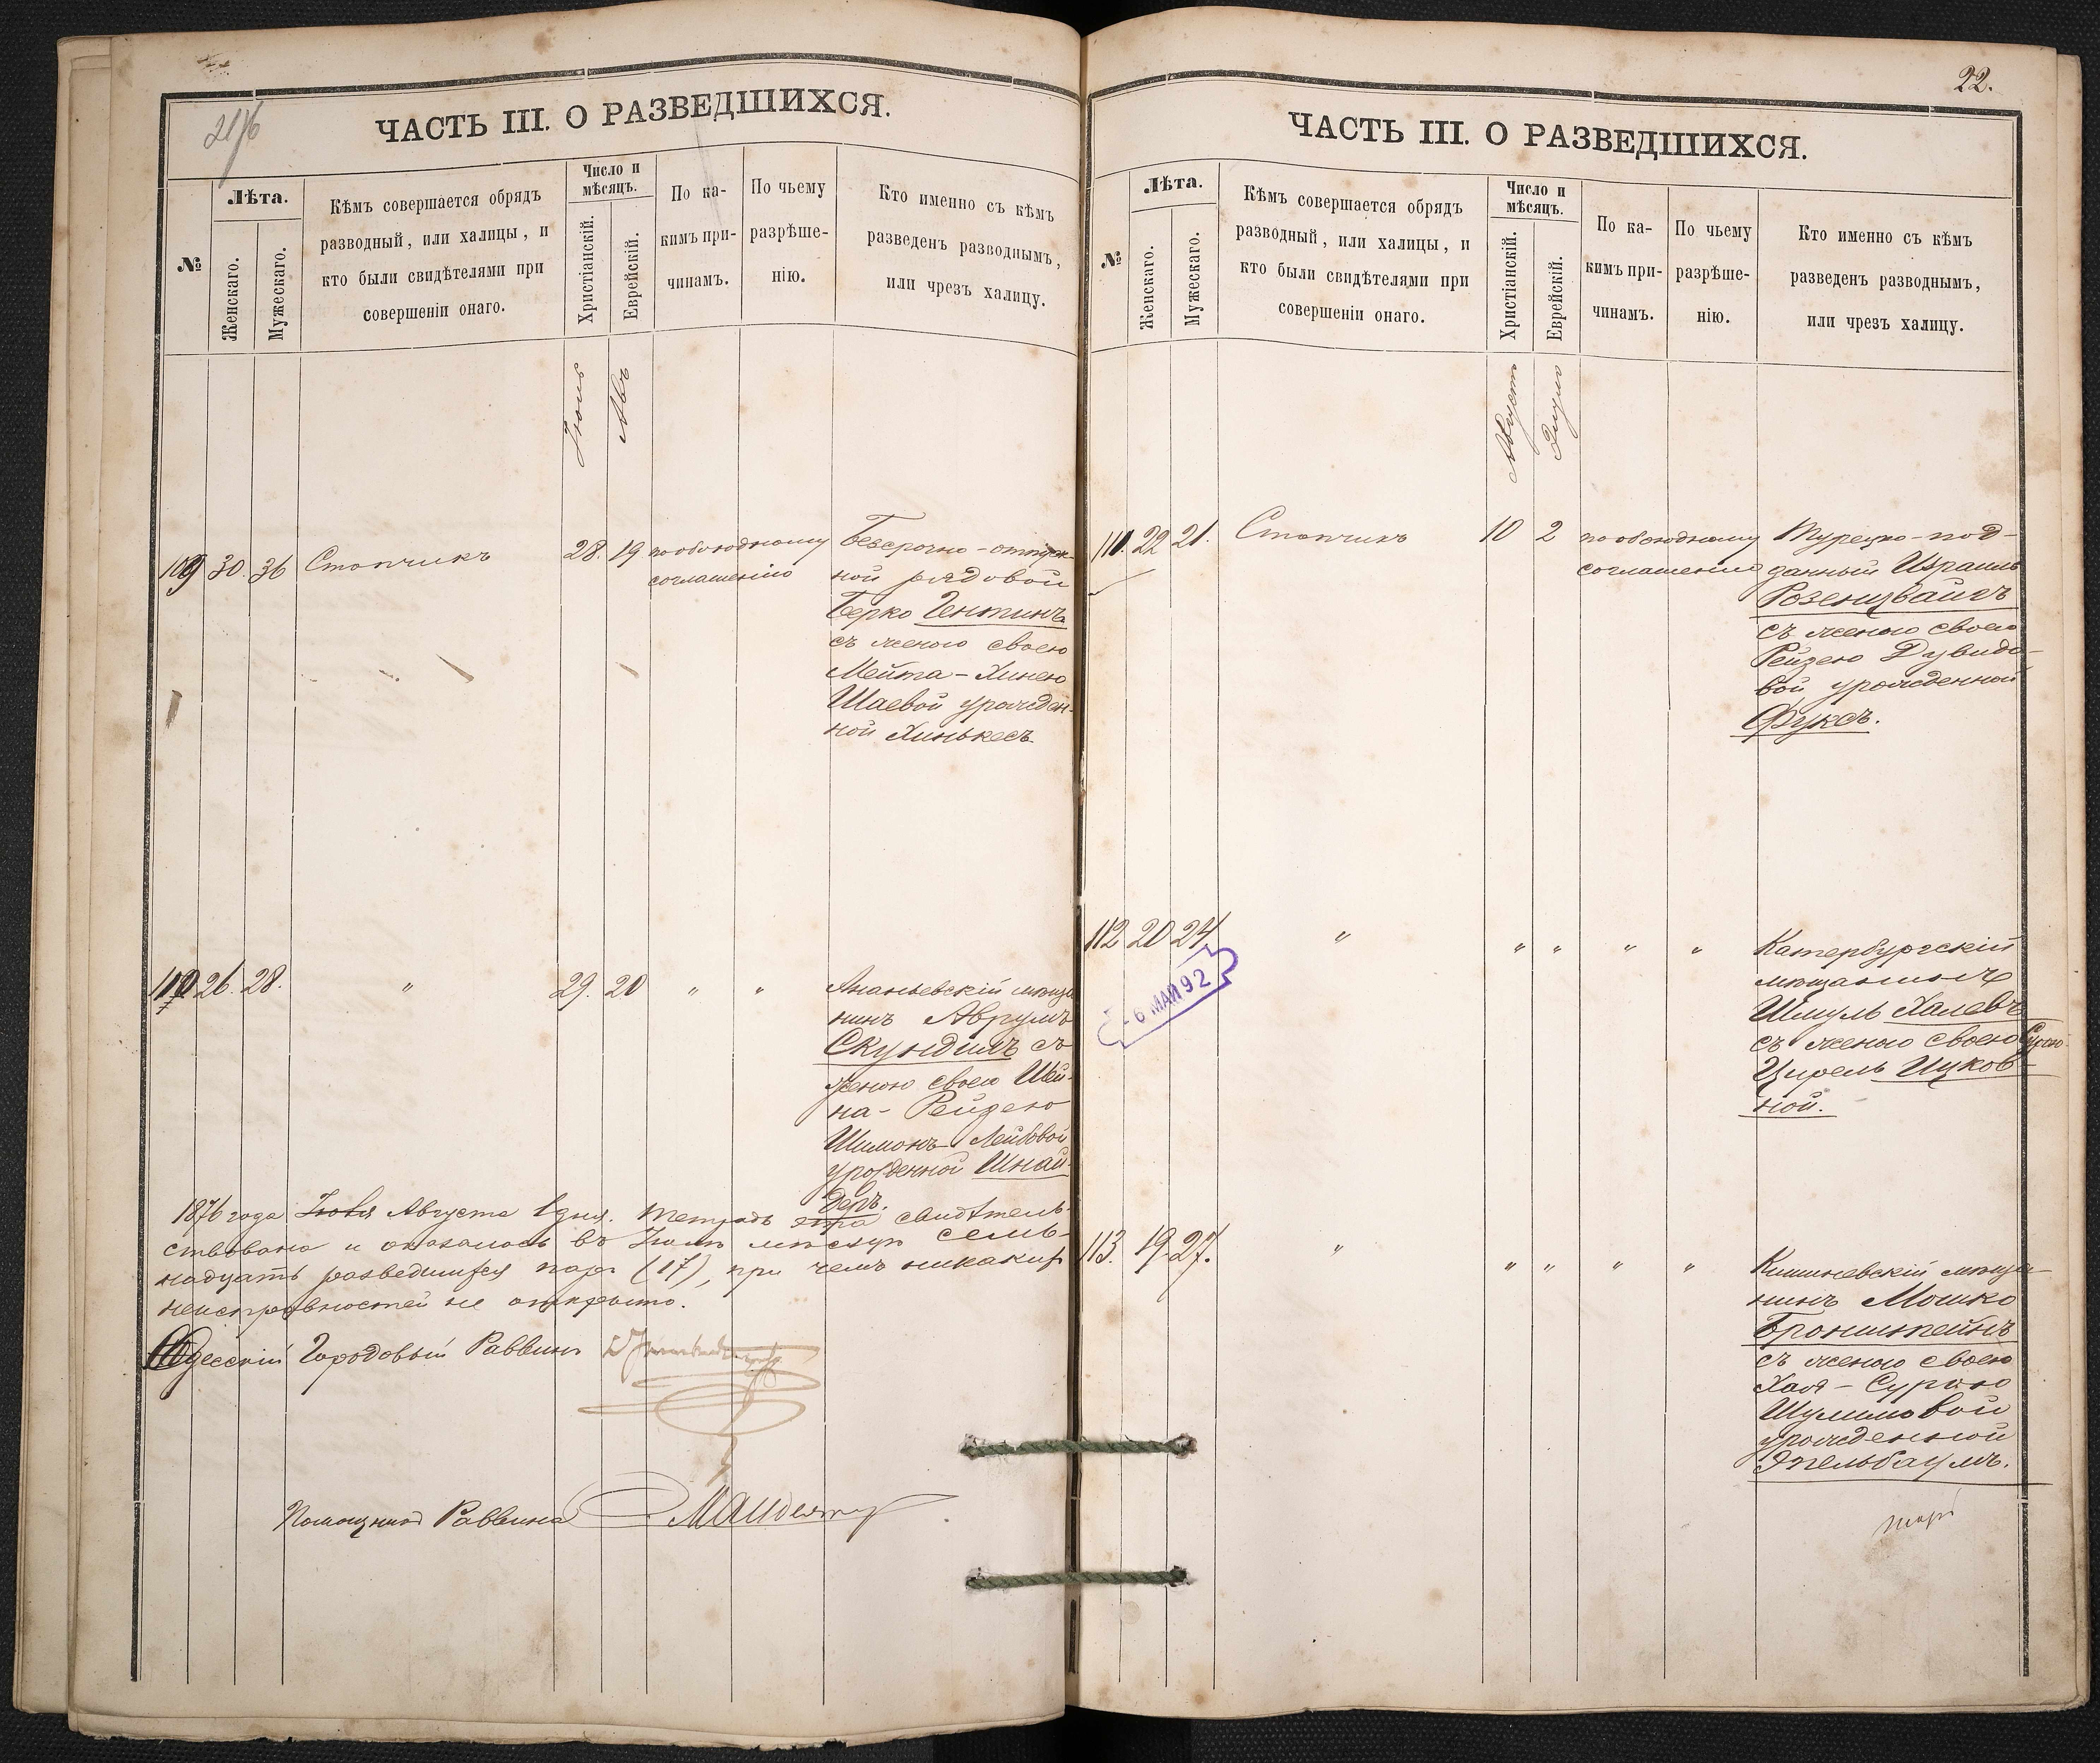 2176
ЧАСТЬ III. О РАЗВЕДШИХСЯ.
№
Лѣта.
Женскаго.
Мужескаго.
Кѣмъ совершается обрядъ
разводный, или халицы, и
кто были свидѣтелями при
совершеніи онаго.
Число и
мѣсяцъ.
Христіанскій.
Еврейскій.
По ка-
кимъ при-
чинамъ.
По чьему
разрѣше-
нію.
Кто именно съ кѣмъ
разведенъ разводнымъ,
или чрезъ халицу.
Іюль
Авъ
109 30. 36 Стопчикъ 28. 19 по обоюдному
соглашенію
Безсрочно-отпуск-
ной рядовой
Берко Гентинъ
съ женою своею
Мейта-Хинею
Шаевой урожден-
ной Хинькесъ
110 26. 28. " 29. 20 " "
Ананьевскій мѣща
нинъ Аврумъ
Скундинъ съ
женою своею Шей-
на-Рейзею
Шимонъ-Лейбовой
урожденной Шнай-
деръ.
1876 года Іюля Августа 1 дня. Тетрадь эта свидѣтель-
ствована и оказалось въ Іюлѣ мѣсяцѣ семь-
надцать разведшихся паръ (17), при чемъ никакихъ
неисправностей не открыто.
Одесскій Городовый Раввинъ
Помощникъ Раввина
22.
ЧАСТЬ III. О РАЗВЕДШИХСЯ.
№
Лѣта.
Женскаго.
Мужескаго.
Кѣмъ совершается обрядъ
разводный, или халицы, и
кто были свидѣтелями при
совершеніи онаго.
Число и
мѣсяцъ.
Христіанскій.
Еврейскій.
По ка-
кимъ при-
чинамъ.
По чьему
разрѣше-
нію.
Кто именно съ кѣмъ
разведенъ разводнымъ,
или чрезъ халицу.
Августъ
Элулъ
111. 22 21. Стопчикъ 10 2 по обоюдному
соглашенію
Турецко-под-
данный Израиль
Розенцвайгъ
съ женою своею
Рейзею Дувидо-
вой урожденной
Фуксъ.
112 20 24 " " " " "
Катербургскій
мѣщанинъ
Шмуль Халевъ
съ женою своею Сурою
Цирель Ицков-
ной.
- 6 МАЙ 92
113. 19. 27. " " " " "
Кишиневскій мѣща-
нинъ Мошко
Бронштейнъ
съ женою своею
Хая-Сурою
Шулимовой
урожденной
Эпельбаумъ.